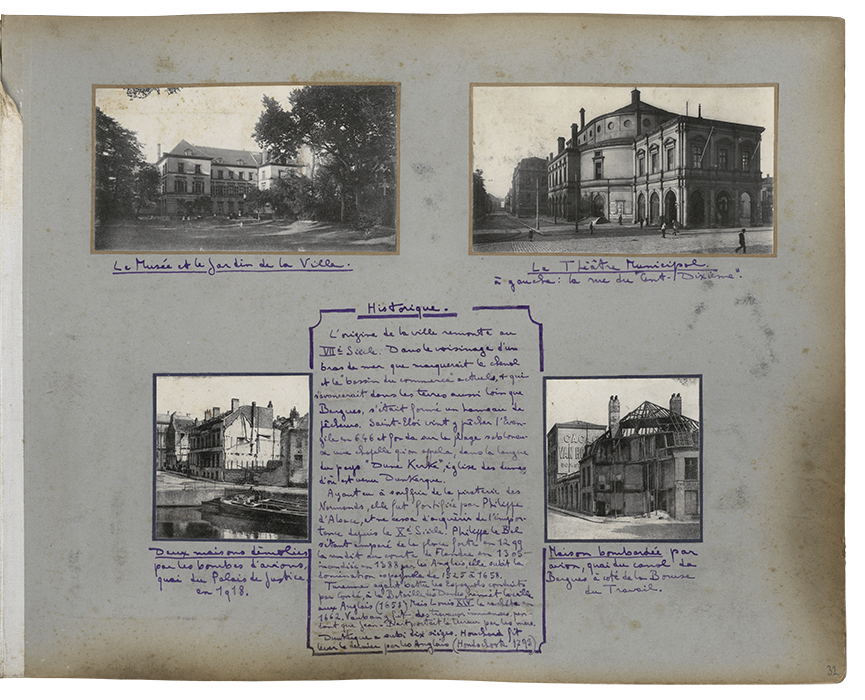 Le Musée et le Jardin de la Ville.
Le Théâtre Municipal.
à gauche: la rue du Cent-Dixième".
Historique.
L'origine de la ville remonte au
VIIe Siècle. Dans le voisinage d'un
bras de mer que marquerait le chenal
et le bassin du commerce actuels, & qui
s'avancerait dans les terres aussi loin que
Bergues, s'était formé un hameau de
pêcheurs. Saint-Eloi vint y prêcher l'Evan-
gile en 646 et fonda sur la plage sablonneu-
se une chapelle qu'on appela, dans la langue
du pays "Dune Kerke", église des dunes
d'où est venu Dunkerque.
Ayant eu à souffrir de la piraterie des
Normands, elle fut fortifiée par Philippe
d'Alsace, et ne cessa d'acquérir de l'impor-
tance depuis le Xe Siècle. Philippe le Bel
s'étant emparé de la place forte en 1299
la rendit au comte de Flandre en 1305
incendiée en 1388 par les Anglais elle subit la
domination espagnole de 1525 à 1658.
Turenne ayant battu les Espagnols conduits
par Condé, à la Bataille des Dunes, remit la ville
aux Anglais (1658) Mais Louis XIV la racheta en
1662. Vauban y fit des travaux immenses, pen-
dant que Jean-Bart portait la terreur par les mers.
Dunkerque a subi dix sièges. Houchard fit
lever le dernier par les Anglais (Hondschoote 1793)
Deux maisons démolies
par les bombes d'avions,
quai du Palais de Justice,
en 1918.
CACAO
VAN
Maison bombardée par
avion, quai du canal de
Bergues à côté de la Bourse
du Travail.
32